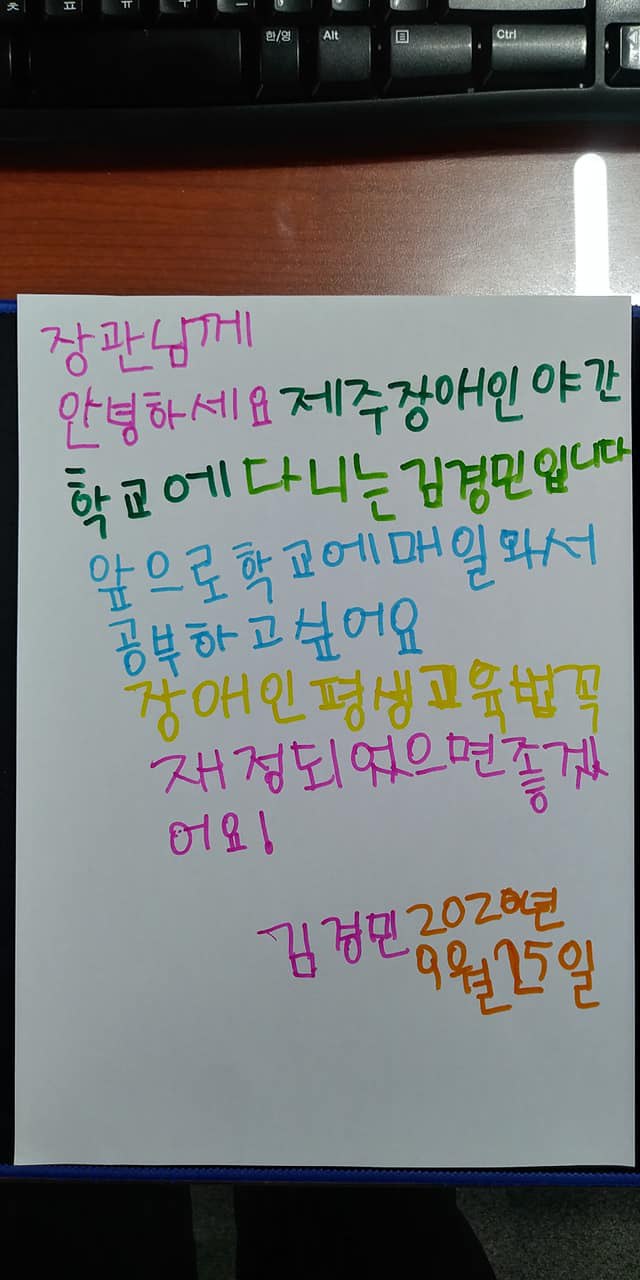 ㅊ ㅍ ㅠ ㅜ ㅡ
한/영 Alt Ctrl
장관님께
안녕하세요 제주장애인 야간
학교에 다니는 김경민입니다
앞으로 학교에 매일 와서
공부하고 싶어요
장애인평생교육법 꼭
재정되었으면 좋겠
어요!
김경민 2020년
9월 25일